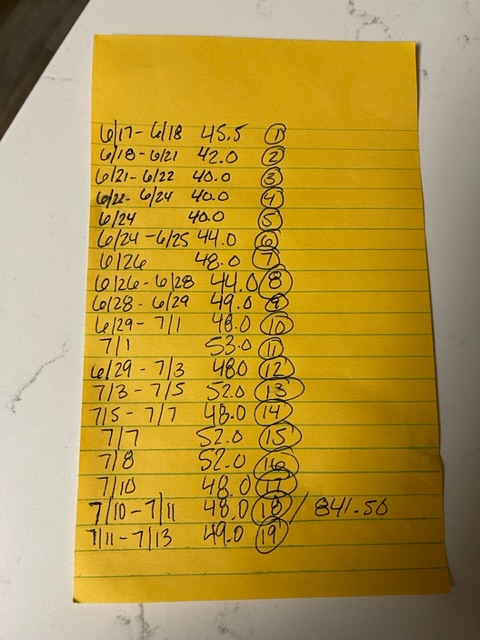 6/17 - 6/18 45.5 1
6/18 - 6/21 42.0 2
6/21 - 6/22 40.0 3
6/22 - 6/24 40.0 4
6/24 40.0 5
6/24 - 6/25 44.0 6
6/26 48.0 7
6/26 - 6/28 44.0 8
6/28 - 6/29 49.0 9
6/29 - 7/1 48.0 10
7/1 53.0 11
6/29 - 7/3 48.0 12
7/3 - 7/5 52.0 13
7/5 - 7/7 48.0 14
7/7 52.0 15
7/8 52.0 16
7/10 48.0 17
7/10 - 7/11 48.0 18 / 841.50
7/11 - 7/13 49.0 19